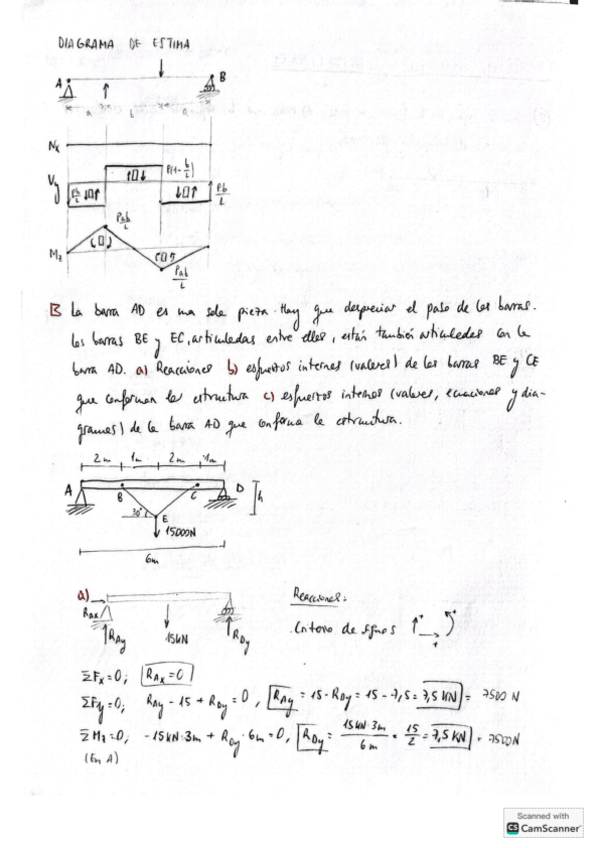 DIAGRAMA DE ESTIMA
A
B
a
b
a
Nx
Vy
Pb/L
P(1-b/L)
Pb/L
Pab/L
Mz
Pab/L
B La barra AD es una sola pieza. Hay que despreciar el paso de las barras.
Las barras BE y EC, articuladas entre ellas, están también articuladas con la
barra AD. a) Reacciones b) esfuerzos internos (valores) de las barras BE y CE
que conforman la estructura c) esfuerzos internos (valores, ecuaciones y dia-
gramas) de la barra AD que conforma la estructura.
2m 1m 2m 1m
A B C D h
30° E
15000N
6m
a)
Reacciones:
RAx
RAy 15kN RDy
Criterio de signos + + +
ΣFx=0; RAx=0
ΣFy=0; RAy - 15 + RDy = 0, RAy = 15 - RDy = 15 - 7,5 = 7,5 KN = 7500 N
ΣMz=0; -15KN·3m + RDy·6m = 0, RDy = 15KN·3m/6m = 15/2 = 7,5 KN = 7500N
(En A)
Scanned with
CS CamScanner